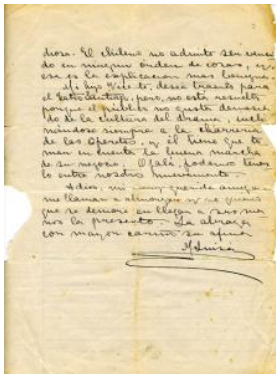 diosa. El chileno no admite ser venci
do en ningun órden de cosas, y
esa es la esplicacion mas benigna.
Mi hijo desea traerlo para
el pero, no está resuelto
porque el público no gusta demasia
do de la cultura del drama,
siempre a la
de las Operetas, y él tiene que to
mar en cuenta la buena marcha
de su negocio. Ojalá, podamos tener
lo entre nosotros nuevamente.
Adios, mi muy querida amiga
me llaman a almorzar y no quiero
que se demore en llegar a sus ma
nos la presente. La abraza
con mayor cariño su afma